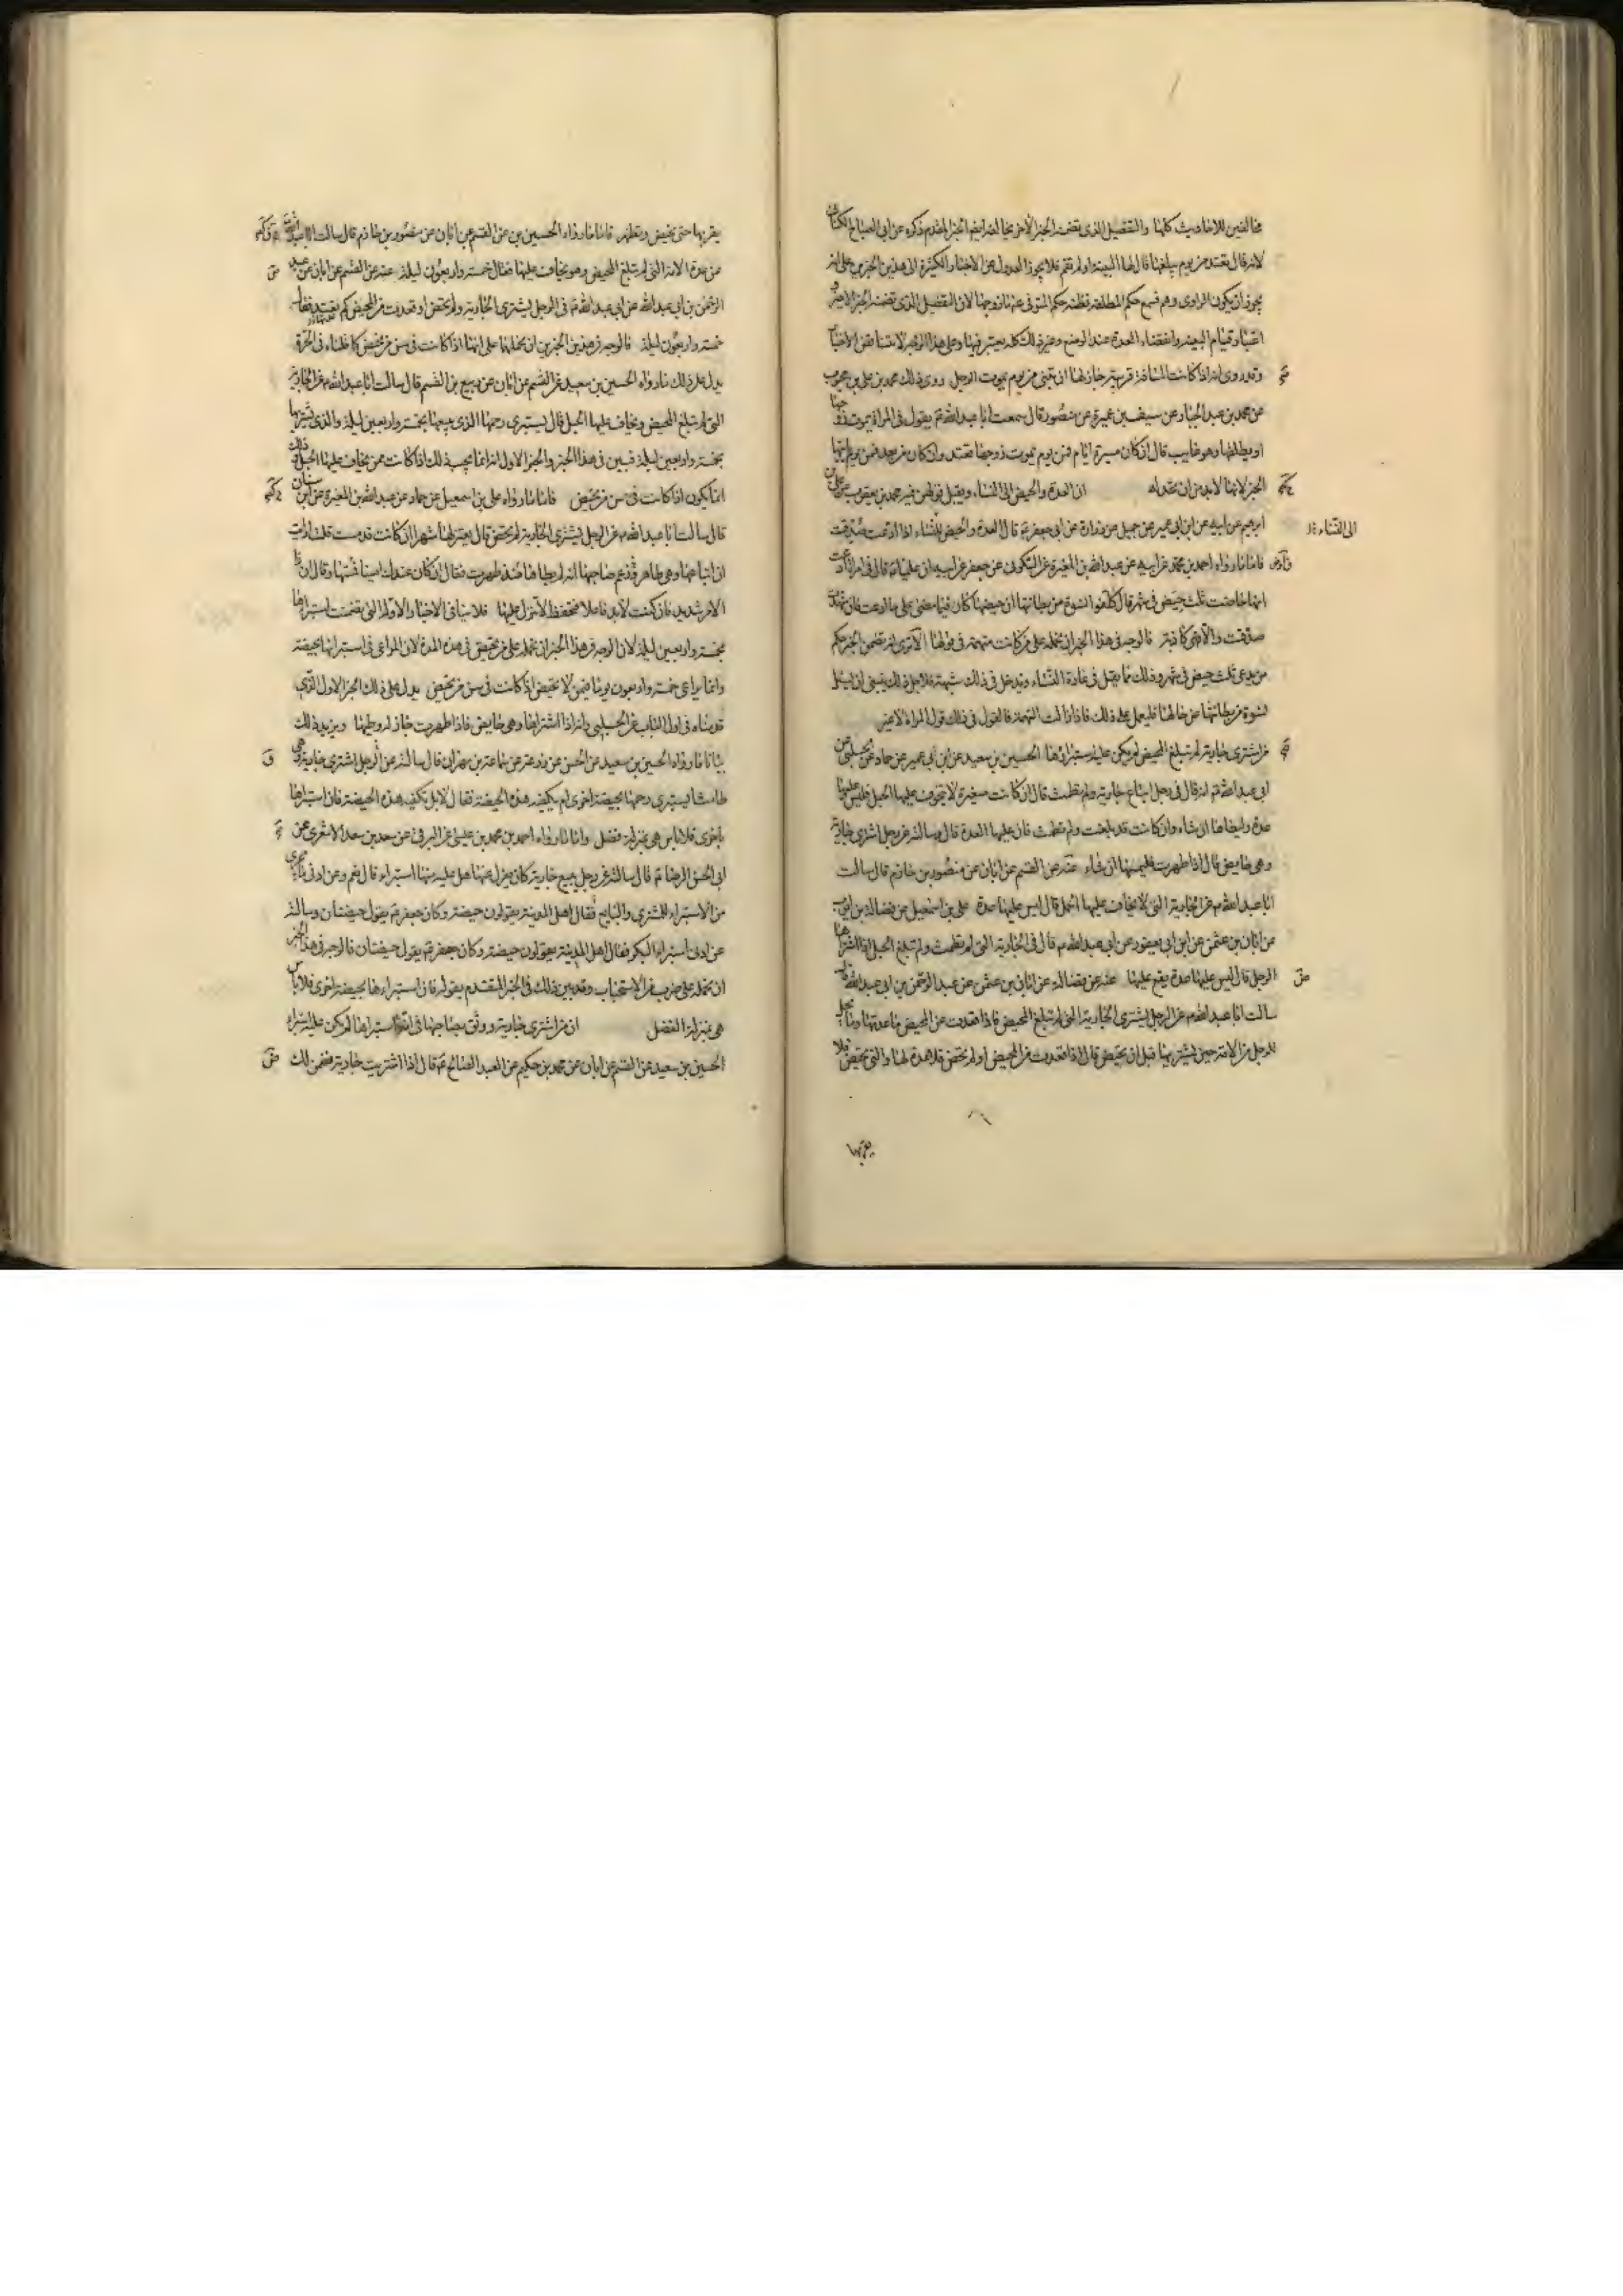 مخالفين للاحاديث كلها والتفصيل الذى تضمنه الخبر الاخر يخالفه ايضا الخبر المقدم ذكره عن ابى الصباح الكنانى
لانه قال تعتد من يوم يبلغها قال لها البينة او لم تقم فلا يجوز العدول عن الاخبار الكثيرة الى هذين الخبرين على انه
يجوز ان يكون الراوى وهم فسمع حكم المطلقة فظنه حكم المتوفى عنها زوجها لان التفصيل الذى تضمنه الخبر الاخير
اعتبار قيام البينة وانقضاء العدة عند الوضع وغير ذلك كله يعتبر فيها وعلى هذا الوجه لا تتناقض الاخبار
وقد روى انه اذا كانت المسافة قريبة جاز لها ان تبنى من يوم يموت الرجل روى ذلك محمد بن على بن محبوب
عن محمد بن عبد الجبار عن سيف بن عميرة عن منصور قال سمعت ابا عبد الله ع يقول فى المراة يموت زوجها
او يطلقها وهو غايب قال ان كان مسيرة ايام فمن يوم يموت زوجها تعتد وان كان من بعد فمن يوم ياتيها
الخبر لانها لا بد من ان تحد له ان العدة والحيض الى النساء ويقبل قولهن فيه محمد بن يعقوب عن على بن
ابرهيم عن ابيه عن ابن ابى عمير عن جميل عن زرارة عن ابى جعفر ع قال العدة والحيض للنساء اذا ادعت صدقت
الى النساء
فاما ما رواه احمد بن محمد عن ابيه عن عبد الله بن المغيرة عن السكونى عن جعفر عن ابيه ان عليا ع قال فى امراة ادعت
انها حاضت ثلث حيض فى شهر قال كلفوا نسوة من بطانتها ان حيضها كان فيما مضى على ما ادعت فان شهدن
صدقت والا فهى كاذبة فالوجه فى هذا الخبر ان نحمله على من كانت متهمة فى قولها الا ترى انه تضمن الخبر حكم
من يدعى ثلث حيض فى شهر وذلك مما يقل فى عادة النساء وتدخل فى ذلك شبهة فلاجل ذلك ينبغى ان يسئل
نسوة من بطانتها عن حالها فليعمل على ذلك فاذا زالت التهمة فالقول فى ذلك قول المراة لا غير
من اشترى جارية لم تبلغ المحيض لم يكن عليه استبراؤها الحسين بن سعيد عن ابن ابى عمير عن حماد عن الحلبى عن
ابى عبد الله ع انه قال فى رجل ابتاع جارية ولم تطمث قال ان كانت صغيرة لا يتخوف عليها الحبل فليس عليها
عدة وليطاها ان شاء وان كانت قد بلغت ولم تطمث فان عليها العدة قال وسالته عن رجل اشترى جارية
وهى حايض قال اذا طهرت فليمسها ان شاء عنه عن القسم عن ابان عن منصور بن حازم قال سالت
ابا عبد الله ع عن الجارية التى لا يخاف عليها الحمل قال ليس عليها عدة على بن اسمعيل عن فضالة بن ايوب
عن ابان بن عثمن عن ابن ابى يعفور عن ابى عبد الله ع قال فى الجارية التى لم تطمث ولم تبلغ الحبل اذا اشتراها
الرجل قال ليس عليها عدة يقع عليها عنه عن فضالة عن ابان بن عثمن عن عبد الرحمن بن ابى عبد الله قال
سالت ابا عبد الله ع عن الرجل يشترى الجارية التى لم تبلغ المحيض فاذا قعدت عن المحيض ما عدتها وما يحل
للرجل من الامة حين يشتريها قبل ان تحيض قال اذا قعدت من المحيض او لم تحض فلا عدة لها والتى تحيض فلا
يقربها
يقربها حتى تحيض وتطهر فاما ما رواه الحسين بن عن القسم عن ابان عن منصور بن حازم قال سالت ابا عبد الله
عن عدة الامة التى لم تبلغ المحيض وهو يخاف عليها فقال خمسة واربعون ليلة عنه عن القسم عن ابان عن عبد
الرحمن بن ابى عبد الله عن ابى عبد الله ع فى الرجل يشترى الجارية ولم تحض او قعدت من المحيض كم عدتها فقال
خمسة واربعون ليلة فالوجه فى هذين الخبرين ان نحملها على انها اذا كانت فى سن من تحيض كما ظناه فى الحرة
يدل على ذلك ما رواه الحسين بن سعيد عن القسم عن ابان عن ربيع بن القسم قال سالت ابا عبد الله ع عن الجارية
التى لم تبلغ المحيض ويخاف عليها الحبل قال يستبرى رحمها الذى يبيعها بخمسة واربعين ليلة والذى يشتريها
بخمسة واربعين ليلة فبين فى هذا الخبر والخبر الاول انه انما يجب ذلك اذا كانت ممن يخاف عليها الحبل وذلك
انما يكون اذا كانت فى سن من تحيض فاما ما رواه على بن اسمعيل عن حماد عن عبد الله بن المغيرة عن ابن سنان
قال سالت ابا عبد الله ع عن الرجل يشترى الجارية لم تحض قال يعتزلها شهرا ان كانت قد مست قلت ارايت
ان ابتاعها وهى طاهرة وزعم صاحبها انه لم يطاها منذ طهرت فقال ان كان عندك امينا فمسها وقال ان ذا
الامر شديد فان كنت لا بد فاعلا فتحفظ لا تنزل عليها فلا ينافى الاخبار الاولة التى تضمنت استبراءها
بخمسة واربعين ليلة لان الوجه فى هذا الخبر ان نحمله على من تحيض فى هذه المدة لان المراعى فى استبرائها بحيضة
وانما يراعى خمسة واربعون يوما فيمن لا تحيض اذا كانت فى سن من تحيض يدل على ذلك الخبر الاول الذى
قدمناه فى اول الباب عن الحلبى وانه اذا اشتراها وهى حايض فاذا طهرت جاز له وطيها ويزيد ذلك
بيانا ما رواه الحسين بن سعيد عن الحسن عن زرعة عن سماعة بن مهران قال سالته عن الرجل اشترى جارية وهى
طامث ايستبرى رحمها بحيضة اخرى ام تكفيه هذه الحيضة فقال لا بل تكفيه هذه الحيضة فان استبراها
باخرى فلا باس هى بمنزلة فضل واما ما رواه احمد بن محمد بن عيسى عن البرقى عن سعد بن سعد الاشعرى عن
ابى الحسن الرضا ع قال سالته عن رجل يبيع جارية كان يعزل عنها هل عليه منها استبراء قال نعم وعن ادنى ما يجزى
من الاستبراء للمشترى والبايع فقال اهل المدينة يقولون حيضة وكان جعفر ع يقول حيضتان وسالته
عن ادنى استبراء البكر فقال اهل المدينة يقولون حيضة وكان جعفر ع يقول حيضتان فالوجه فى هذا الخبر
ان نحمله على ضرب من الاستحباب وقد بين ذلك فى الخبر المتقدم بقوله فان استبراءها بحيضة اخرى فلا باس
هى بمنزلة الفضل ان من اشترى جارية ووثق بصاحبها فى انه استبراها لم يكن عليه استبراء
الحسين بن سعيد عن القسم عن ابان عن محمد بن حكيم عن العبد الصالح ع قال اذا اشتريت جارية فضمن لك